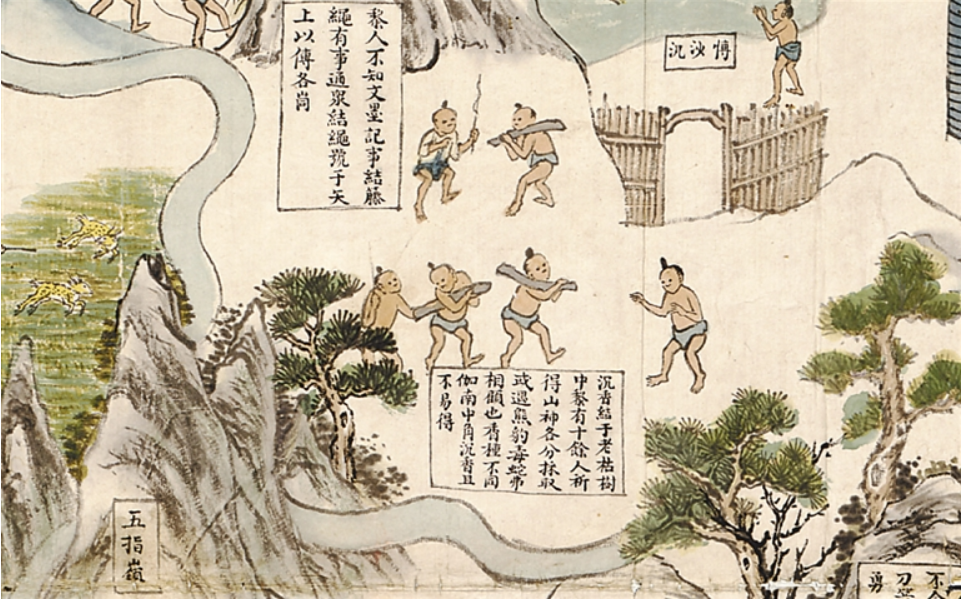 愽沙沉
黎人不知文墨記事結藤
繩有事通衆結繩號于矢
上以傳各峝
沉香結于老枯樹
中黎有十餘人祈
得山神各分採取
或遇熊豹毒蛇弗
相顧也香種不同
伽南中角沉香且
不易得
五指嶺
不
刀
勇